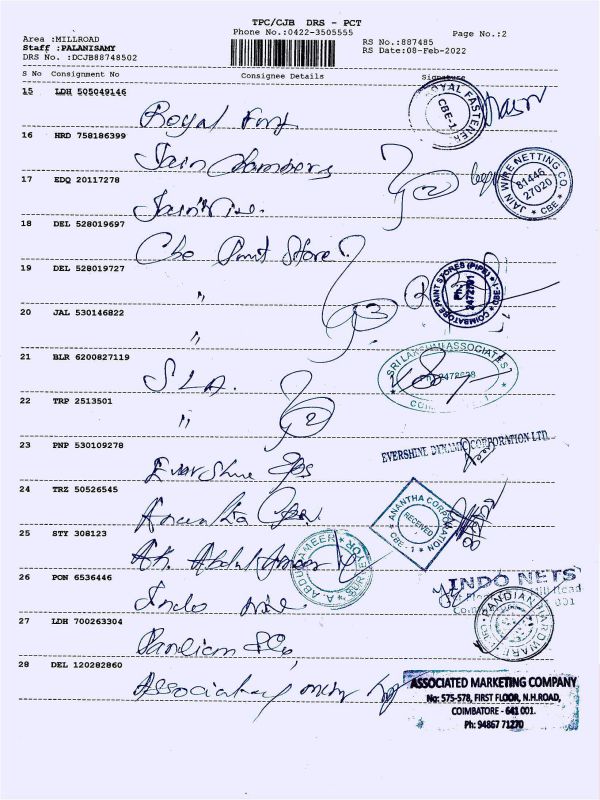 TPC/CJB DRS - PCT
Phone No.:0422-3505555
Page No.:2
Area :MILLROAD
Staff :PALANISAMY
DRS No. :DCJB88748502
RS No.:887485
RS Date:08-Feb-2022
S No Consignment No Consignee Details Signature
15 LDH 505049146
Royal
ROYAL FASTENER CBE-1
16 HRD 758186399
Jain Chambers
17 EDQ 20117278
Jain
JAIN WIRE NETTING CO. 81446 27020 CBE
18 DEL 528019697
Cbe Paint Store
19 DEL 528019727
"
COIMBATORE PAINT STORES (PIPE) CBE-1 Ph:
20 JAL 530146822
"
21 BLR 6200827119
SLA.
SRI LAKSHMI ASSOCIATES
22 TRP 2513501
"
23 PNP 530109278
Evershine
EVERSHINE DYNAMIC CORPORATION LTD.
24 TRZ 50526545
Anantha
ANANTHA CORPORATION RECEIVED CBE-1
25 STY 308123
AK. Abdul Ameer
A. ABDUL AMEER SURVEYOR
26 PON 6536446
Indo
INDO NETS
001
27 LDH 700263304
Pandian
PANDIAN HARDWARE
28 DEL 120282860
Associated
ASSOCIATED MARKETING COMPANY
No: 575-578, FIRST FLOOR, N.H.ROAD,
COIMBATORE - 641 001.
Ph: 94867 71270